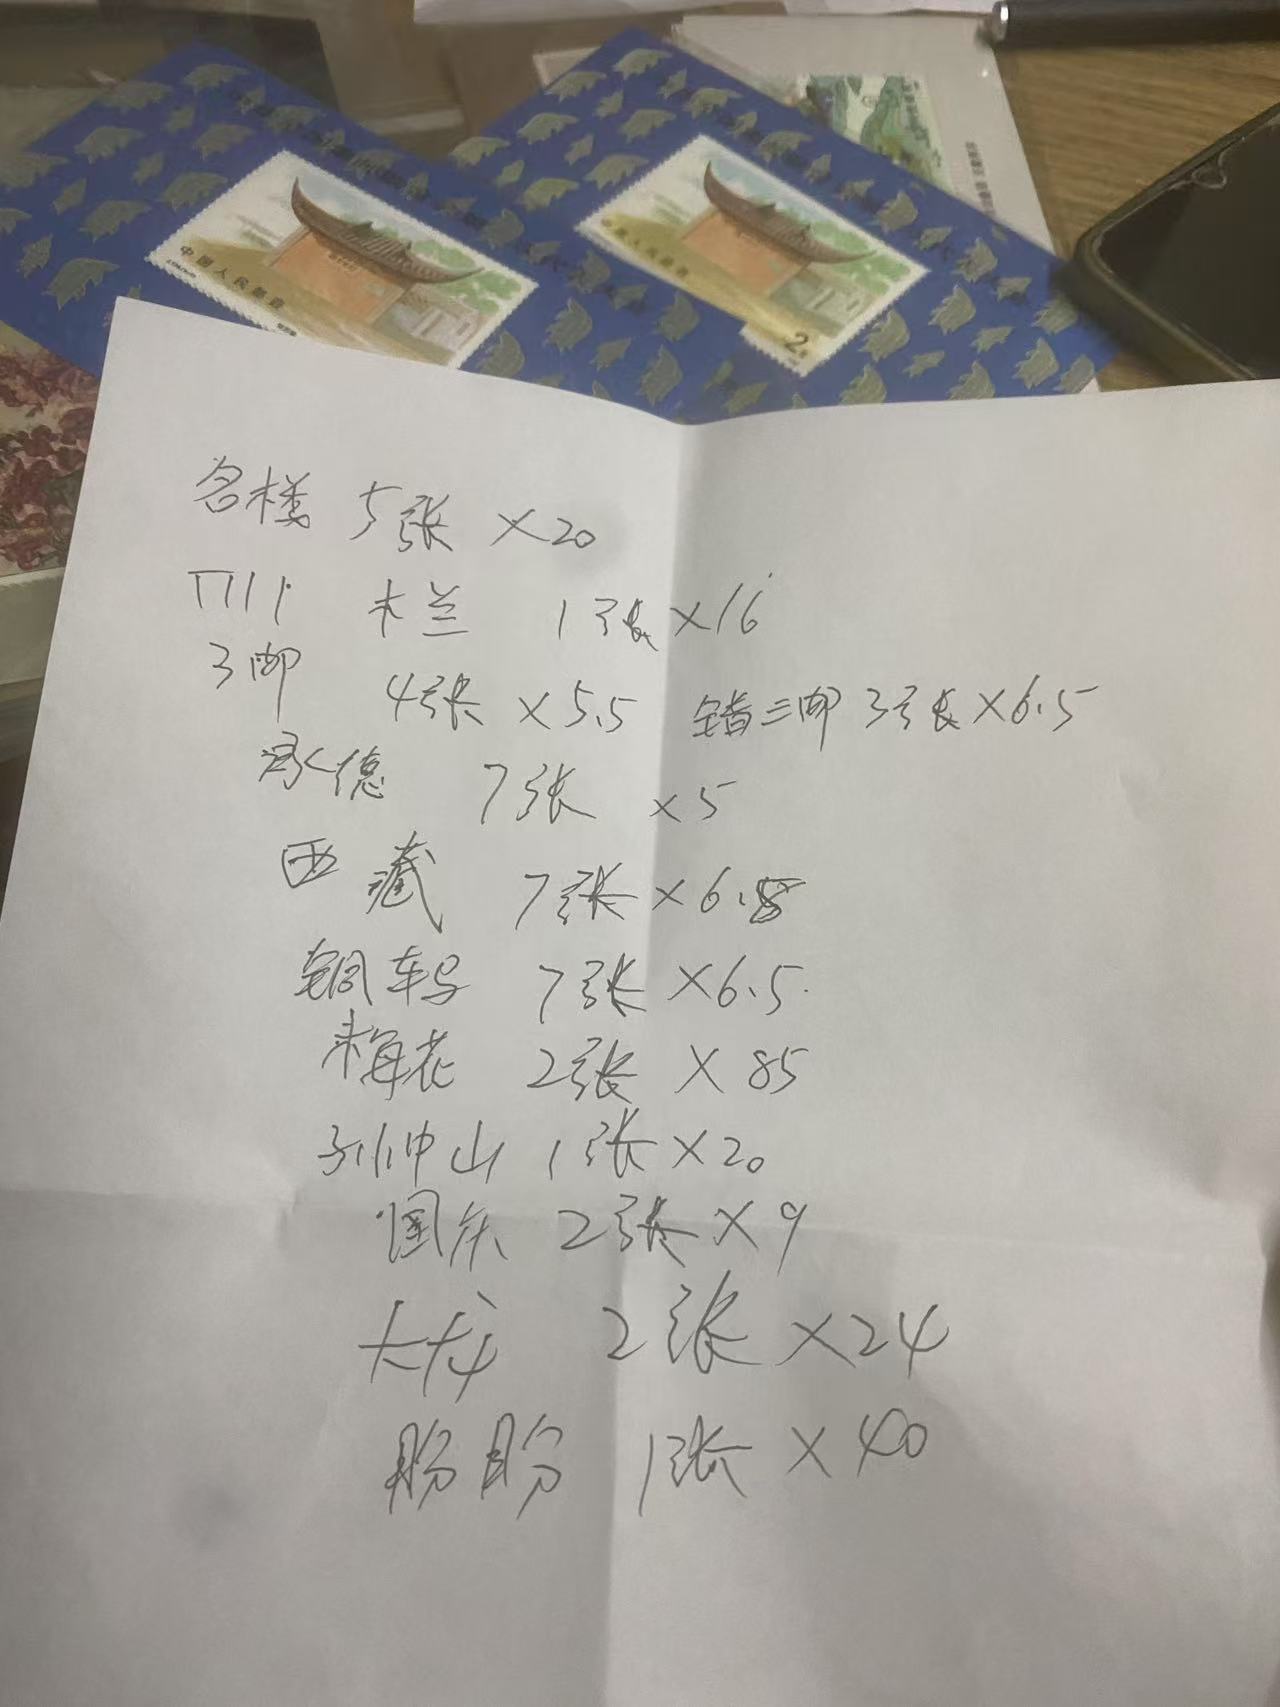 中国人民邮政
中国人民邮政
2元
名楼 5张 ×20
木兰 1张×16
3邮 4张 ×5.5 错三邮 3张×6.5
承德 7张 ×5
西藏 7张×6.5
铜车马 7张×6.5
梅花 2张 ×85
孙中山 1张×20
国庆 2张×9
大龙 2张×24
盼盼 1张×40